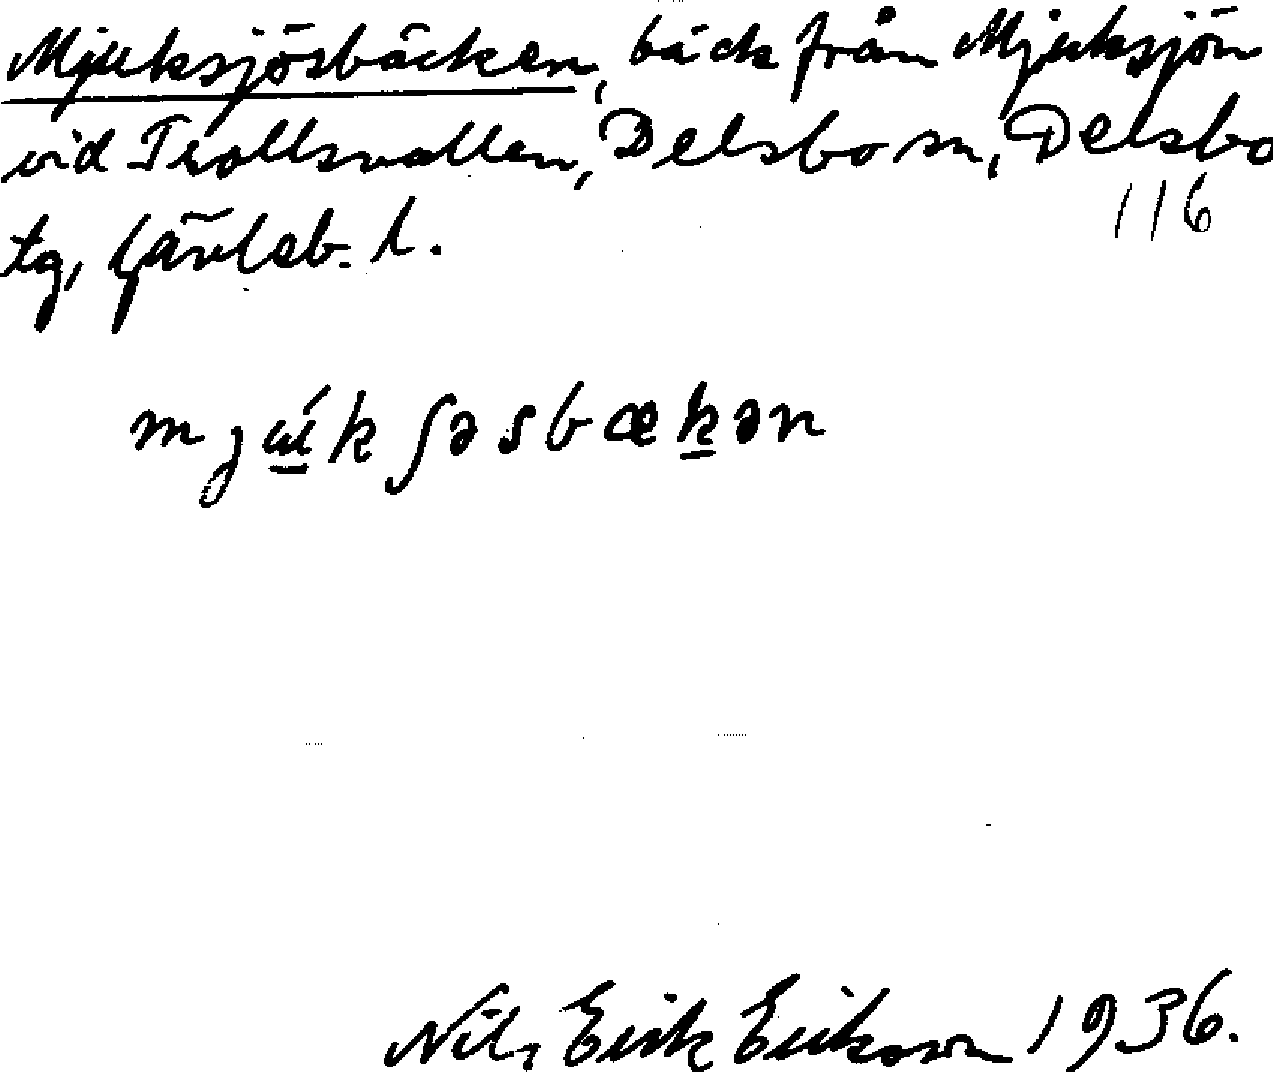 Mjuksjösbäcken, bäck från Mjuksjön
vid Trollsvallen, Delsbo sn, Delsbo
116
tg, Gävleb. l.
Nils Erik Eriksson 1936.